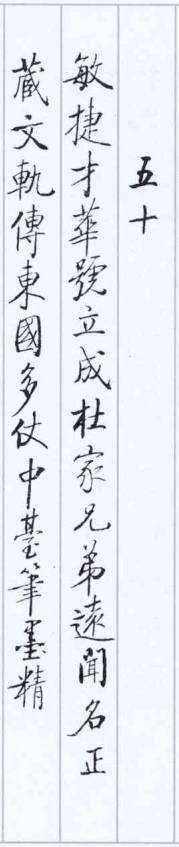 五十
敏捷才華號立成杜家兄弟遠聞名正
蔵文軌傳東國多仗中臺筆墨精